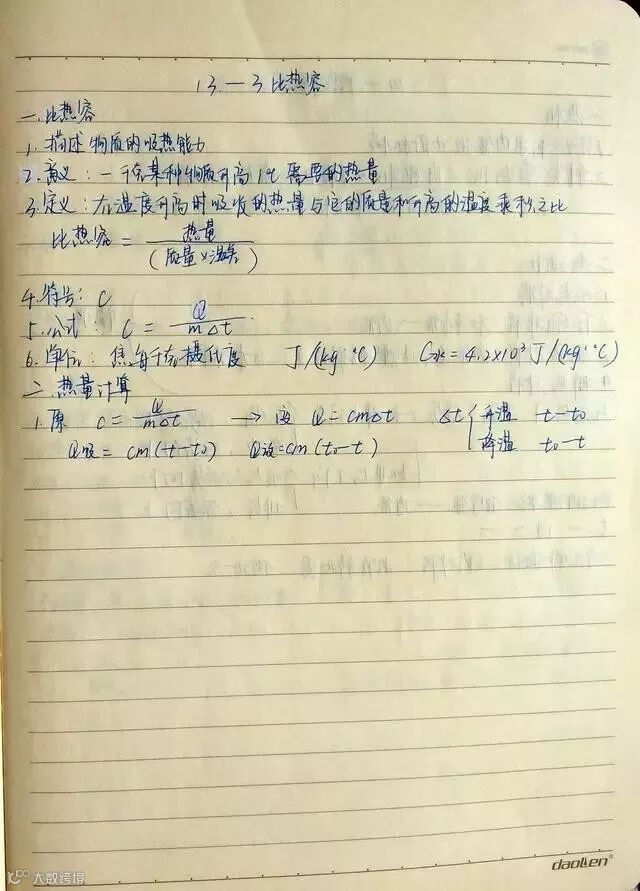 13—3 比热容
一.比热容
1. 描述物质的吸热能力
2. 意义: 一千克某种物质升高1℃需要的热量
3. 定义: 在温度升高时吸收的热量与它的质量和升高的温度乘积之比
比热容 = 热量/(质量×温差)
4. 符号: C
5. 公式: C = Q/mΔt
6. 单位: 焦每千克摄氏度 J/(kg·℃) C水=4.2×10³ J/(kg·℃)
二.热量计算
1. 原 c = Q/mΔt → 变 Q=cmΔt Δt{升温 t-t0
降温 t0-t
Q吸 = cm(t-t0) Q放=cm(t0-t)
daoLen®
大数跨境